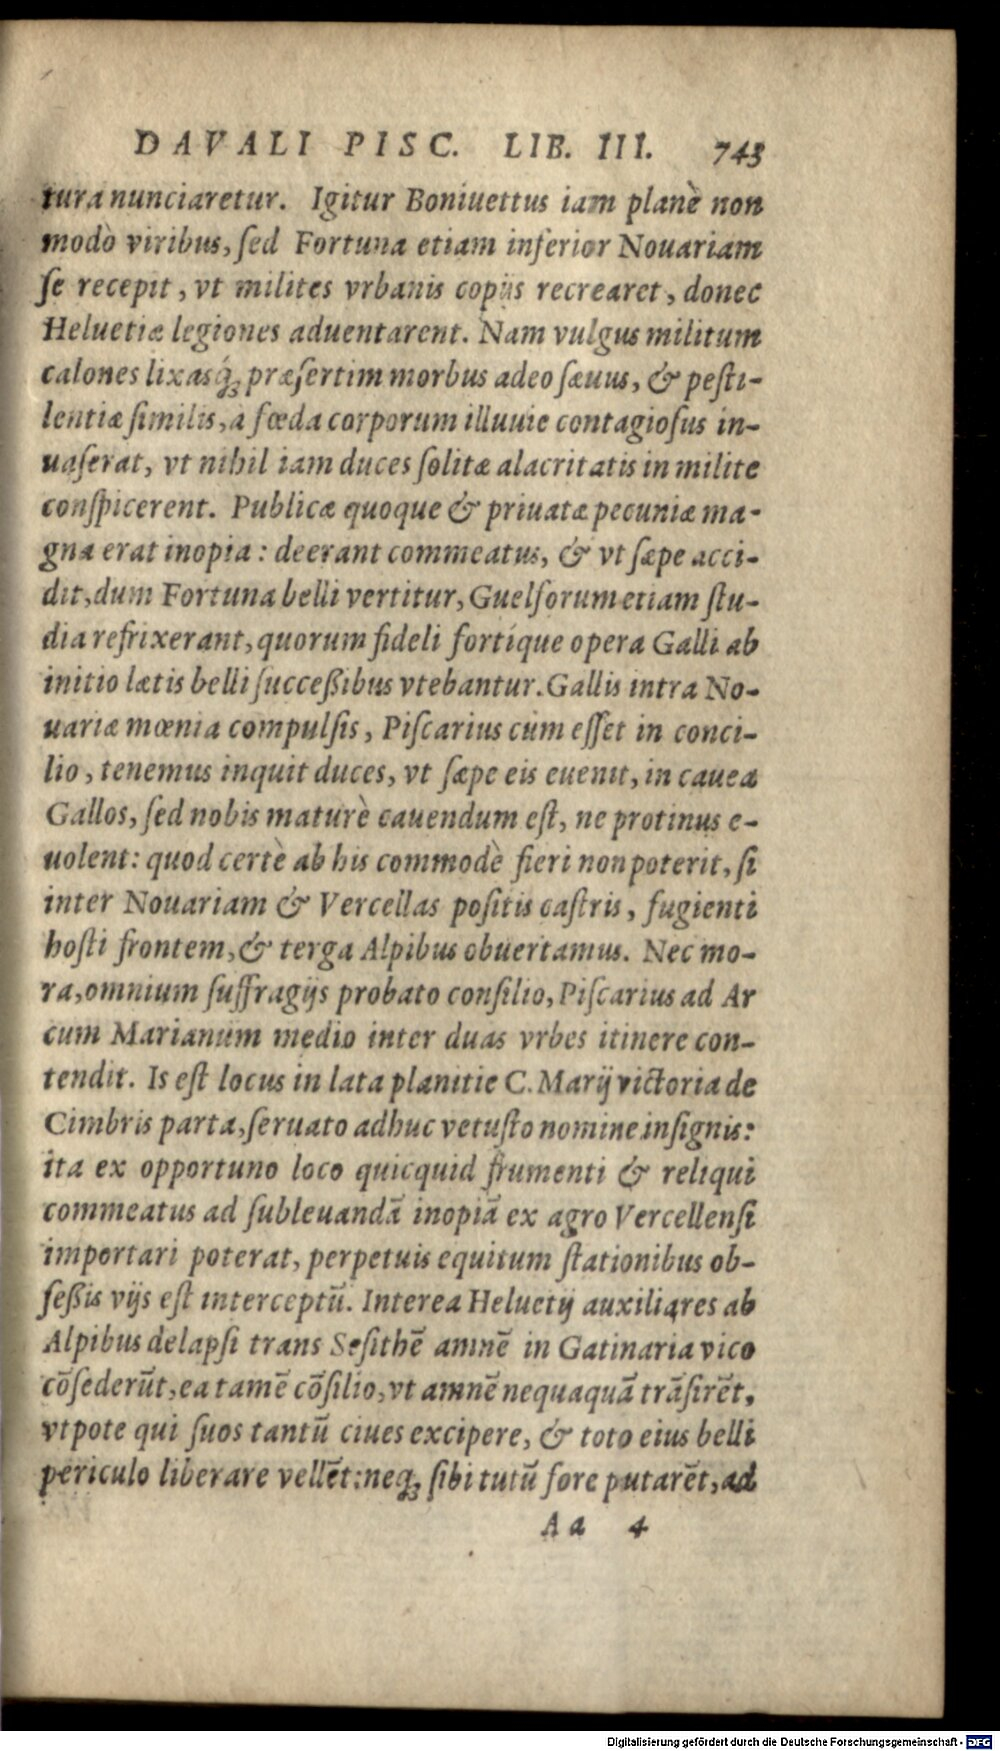 DAVALI PISC. LIB. III. 743
tura nunciaretur. Igitur Boniuettus iam planè non
modò viribus, ſed Fortuna etiam inferior Nouariam
ſe recepit, vt milites vrbanis copijs recrearet, donec
Heluetiæ legiones aduentarent. Nam vulgus militum
calones lixasq́; præſertim morbus adeo ſæuus, & peſti-
lentiæ ſimilis, à fœda corporum illuuie contagioſus in-
uaſerat, vt nihil iam duces ſolitæ alacritatis in milite
conſpicerent. Publicæ quoque & priuatæ pecuniæ ma-
gna erat inopia: deerant commeatus, & vt ſæpe acci-
dit, dum Fortuna belli vertitur, Guelforum etiam ſtu-
dia refrixerant, quorum fideli fortíque opera Galli ab
initio lætis belli ſucceßibus vtebantur. Gallis intra No-
uariæ mœnia compulſis, Piſcarius cùm eſſet in conci-
lio, tenemus inquit duces, vt ſæpe eis euenit, in cauea
Gallos, ſed nobis maturè cauendum eſt, ne protinus e-
uolent: quod certè ab his commodè fieri non poterit, ſi
inter Nouariam & Vercellas poſitis caſtris, fugienti
hoſti frontem, & terga Alpibus obuertamus. Nec mo-
ra, omnium ſuffragijs probato conſilio, Piſcarius ad Ar
cum Marianum medio inter duas vrbes itinere con-
tendit. Is eſt locus in lata planitie C. Marij victoria de
Cimbris parta, ſeruato adhuc vetuſto nomine inſignis:
ita ex opportuno loco quicquid frumenti & reliqui
commeatus ad ſubleuandã inopiã ex agro Vercellenſi
importari poterat, perpetuis equitum ſtationibus ob-
ſeßis vijs eſt interceptũ. Interea Heluetij auxiliares ab
Alpibus delapſi trans Seſithẽ amnẽ in Gatinaria vico
cõſederũt, ea tamẽ cõſilio, vt amnẽ nequaquã trãſirẽt,
vtpote qui ſuos tantũ ciues excipere, & toto eius belli
periculo liberare vellẽt: neq; ſibi tutũ fore putarẽt, ad
Aa 4
Digitalisierung gefördert durch die Deutsche Forschungsgemeinschaft - DFG